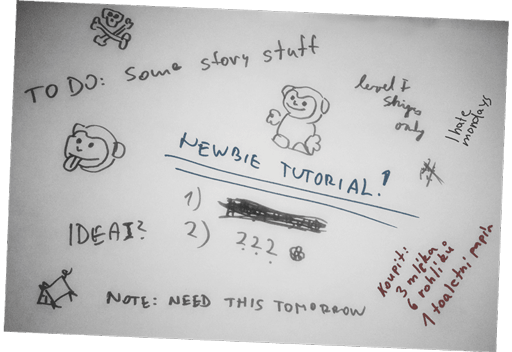 TO DO: Some story stuff
level I
ships
only
I hate
mondays
NEWBIE TUTORIAL!
1)
2) ???
IDEA1?
Koupit:
3 mlíka
6 rohlíků
1 toaletní papír
NOTE: NEED THIS TOMORROW